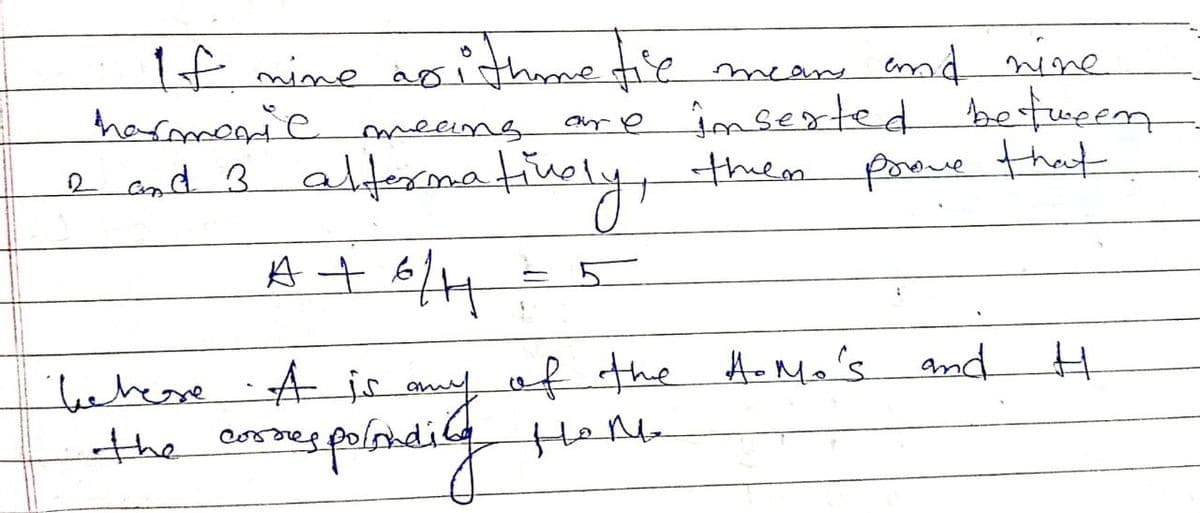 If nine arithmetic means and nine
harmonic means are inserted between
2 and 3 alternatively, then prove that
A + 6/H = 5
Where A is any of the A.M.'s and H
the corresponding H.M.